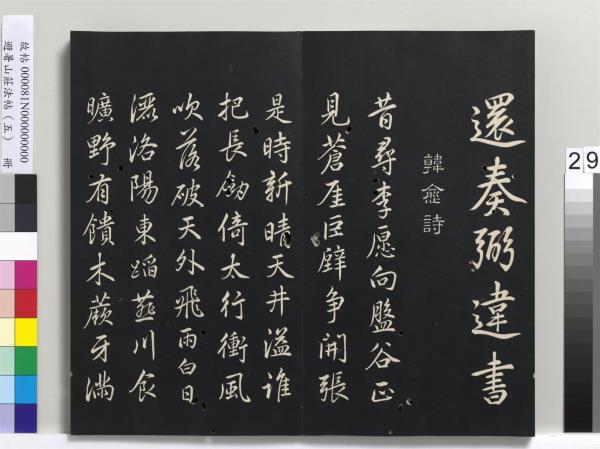 還奏弼違書
韓愈詩
昔尋李愿向盤谷正
見蒼厓巨壁争開張
是時新晴天井溢誰
把長劒倚太行衝風
吹落破天外飛雨白日
灑洛陽東蹈燕川食
曠野有饋木蕨牙滿
故帖 000081N000000000
避暑山莊法帖（五） 冊
29